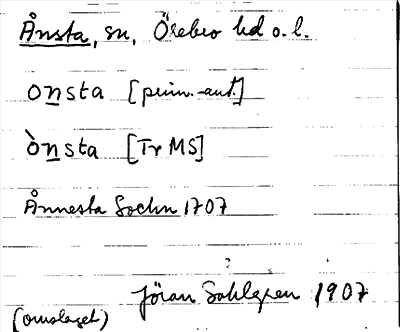 Ånsta, sn, Örebro hd o. l.
onsta [prim.-ant.]
ònsta [Tr MS]
Ånnesta Sochn 1707
Jöran Sahlgren 1907
(omslaget)